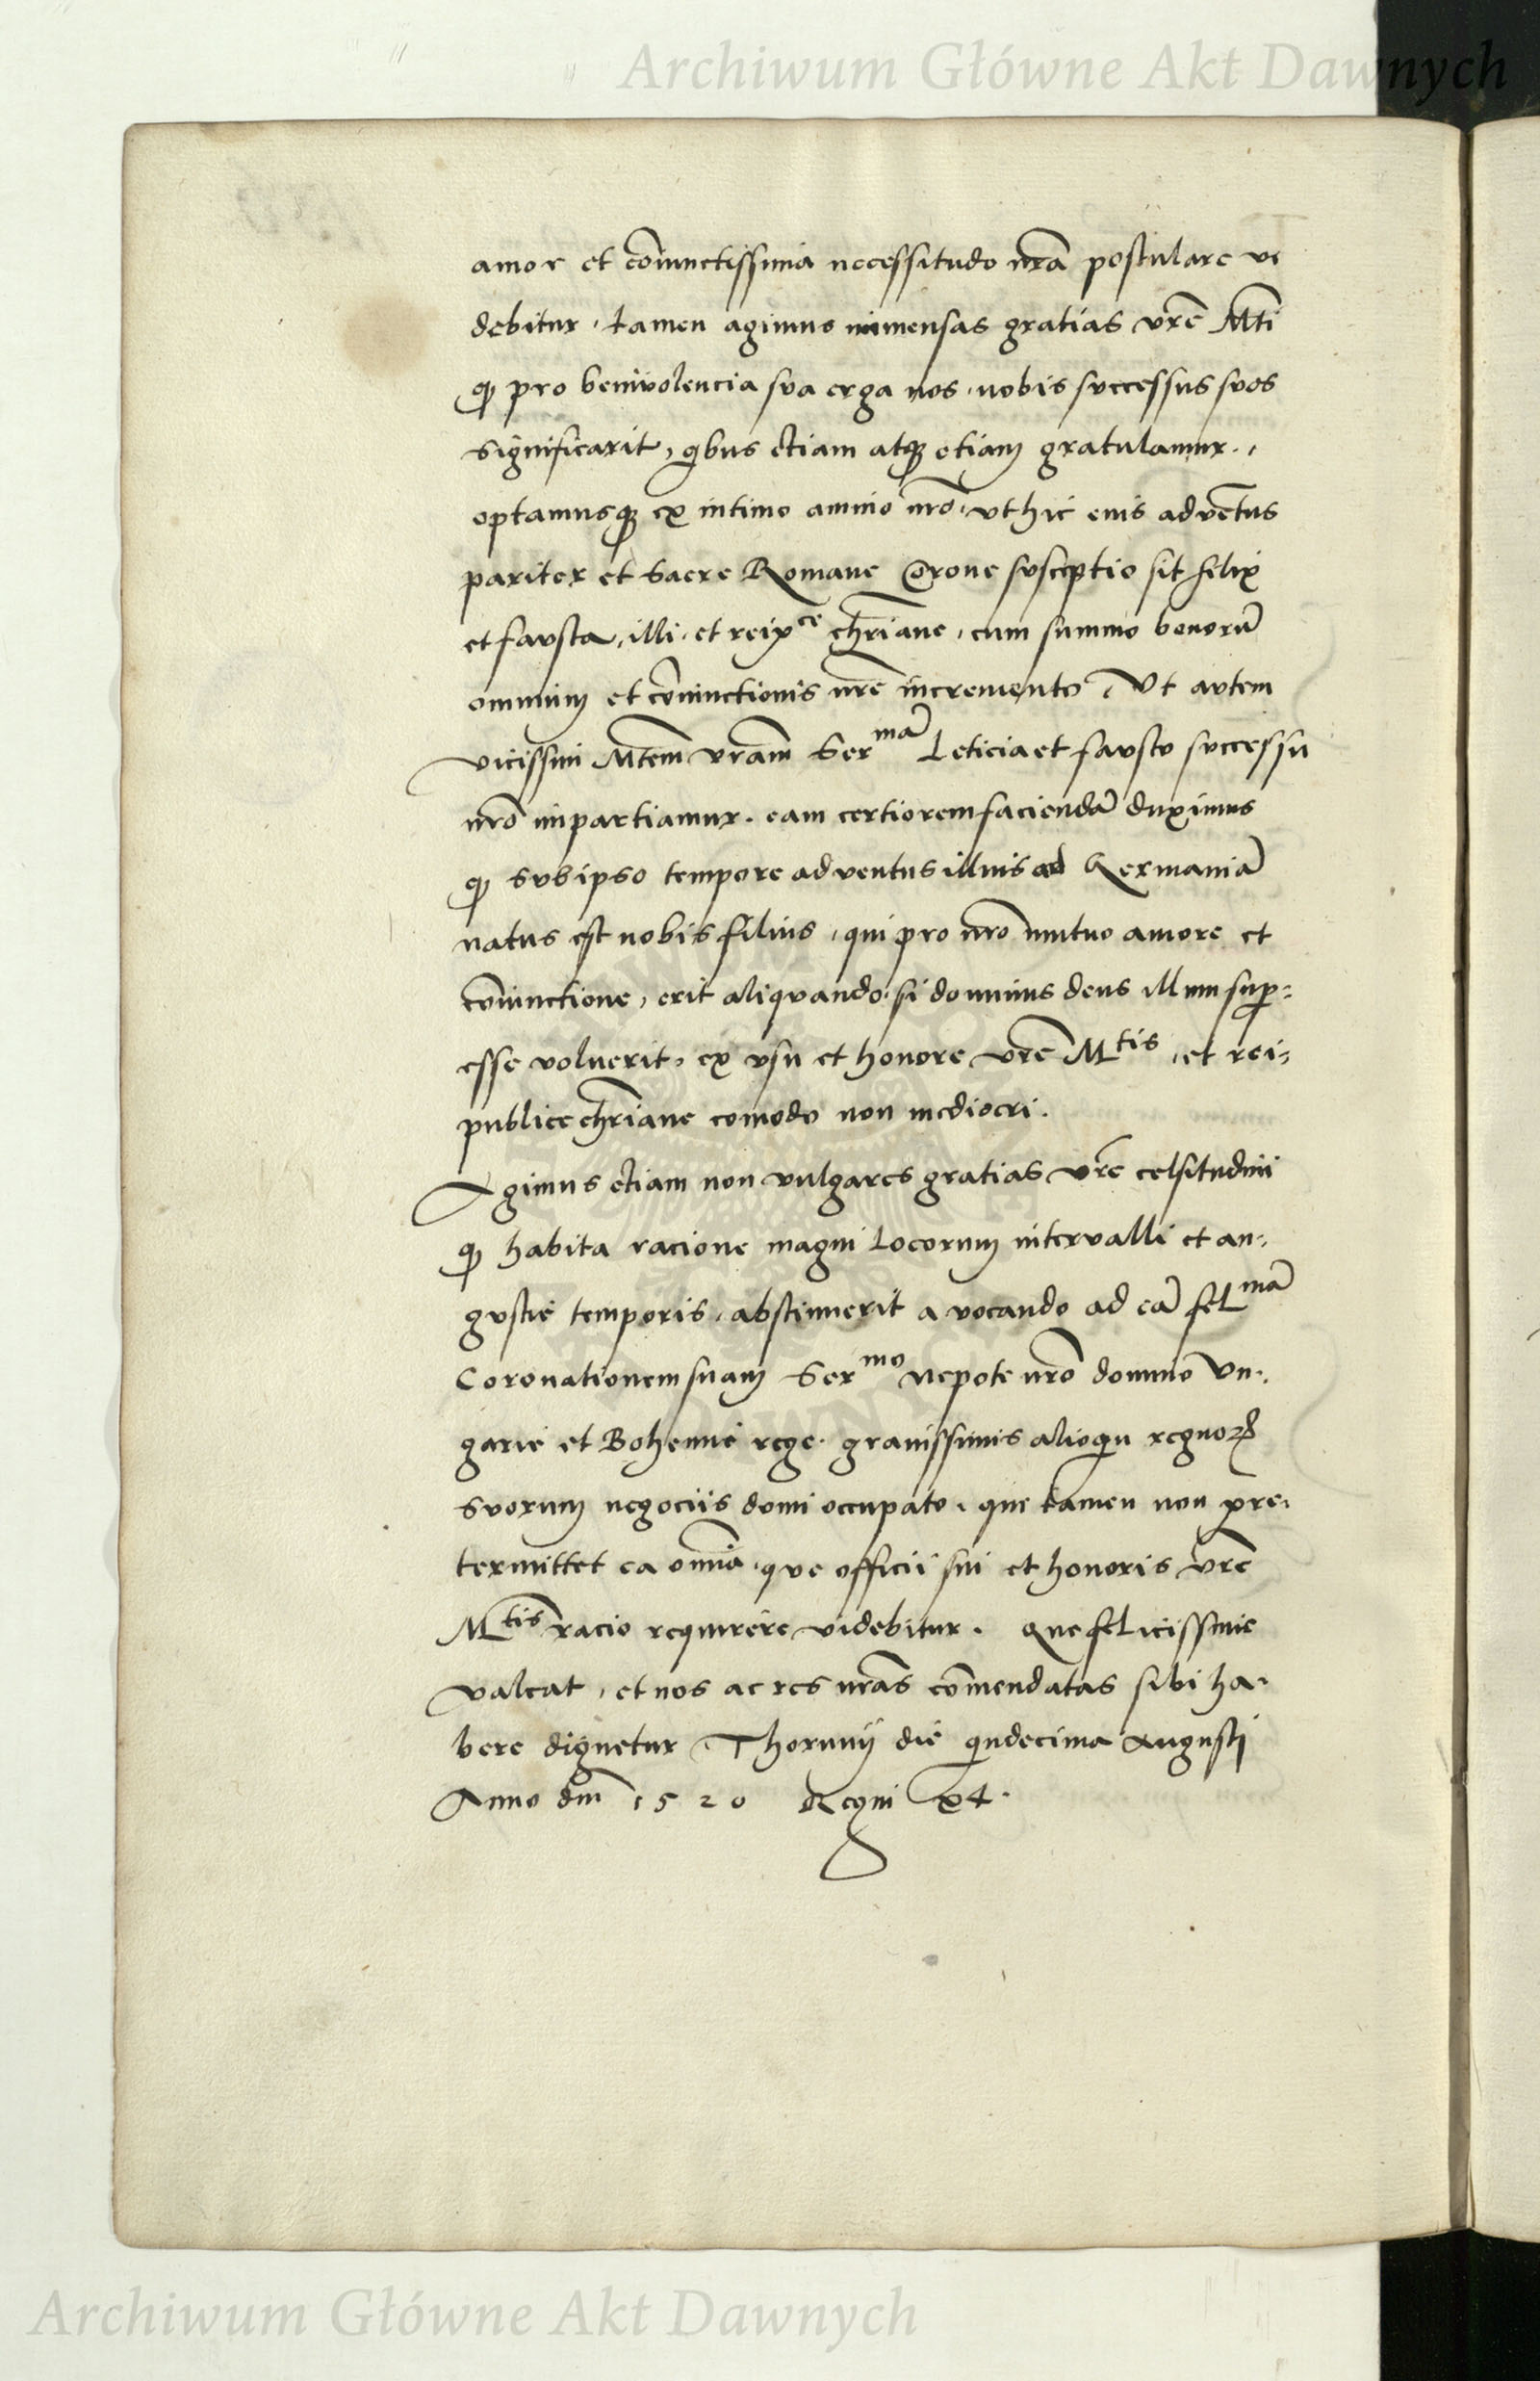 Archiwum Główne Akt Dawnych
amor et cōiunctissima necessitudo nrā postulare vi
debitur, tamen agimus immensas gratias vrē Mti
qȝ pro benivolencia sva erga nos, nobis svccessus svos
significarit, qibus etiam atqȝ etiam gratulamur.,
optamusqȝ ex intimo animo nrō, vt hic eius adventus
pariter et Sacre Romane Corone svsceptio sit felix
et favsta, illi, et reipce chriane, cum summo bonorū
omnium et cōniunctionis nrē incremento, Ut avtem
vicissim Mtem vram Sermā Leticia et favsto svccessu
nrō impartiamur. eam certiorem faciendā duximus
qȝ svb ipso tempore adventus illius ad Germaniā
natus est nobis filius, qui pro nrō mutuo amore et
cōniunctione, erit aliqvando, si dominus deus illum sup-
esse voluerit, ex vsu et honore vrē Mtis, et rei-
publice chriane comodo non mediocri.
Agimus etiam non vulgares gratias vrē celsitudini
qȝ habita racione magni Locorum intervalli et an-
gvstie temporis, abstinuerit a vocando ad eā felmā
Coronationem suam Sermo Nepote nrō domino Un-
garie et Bohemie rege. gravissimis alioqin regnorꝝ
svorum negociis domi occupato. que tamen non pre-
termittet ea omia, qve officii sui et honoris vrē
Mtis racio requirere videbitur. Que felicissime
valeat, et nos ac res nrās cōmendatas sibi ha-
bere dignetur Thorunij die qindecima Augusti
Anno dm̄ 1520 Regni x4.
Archiwum Główne Akt Dawnych